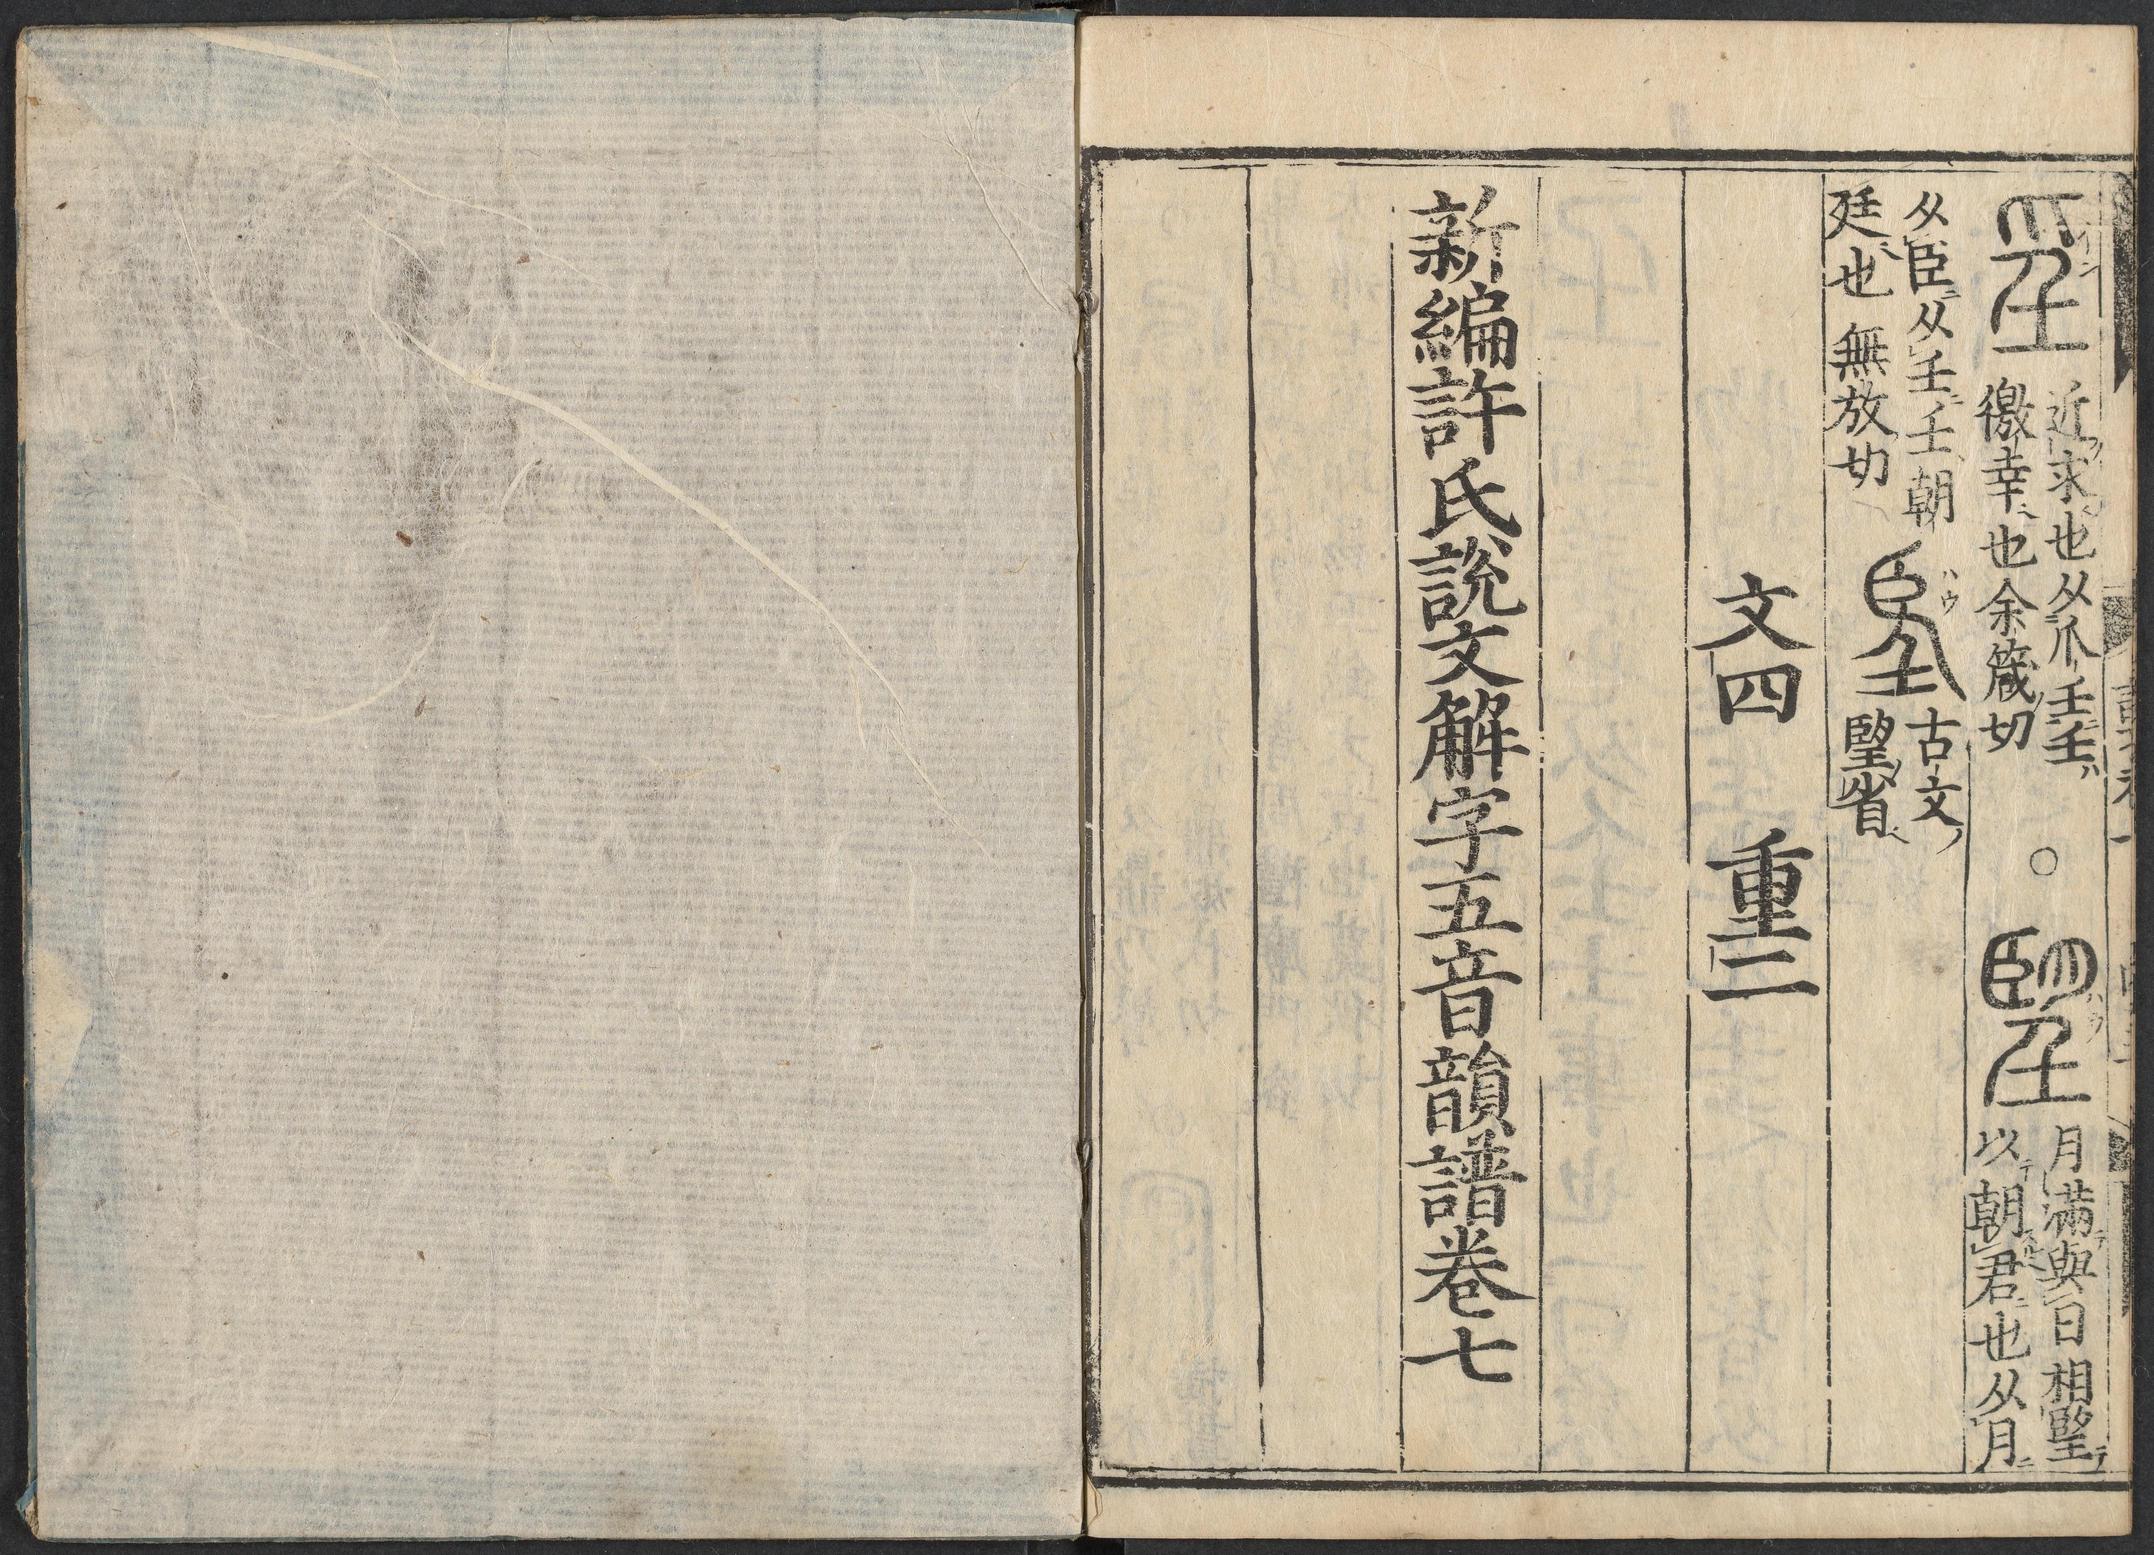 𡈼 近求也从爪𡈼𡈼
徼幸也余箴切
○ 朢 月滿與日相朢
以朝君也从月
从臣从𡈼𡈼朝
廷也無放切
𦣠 古文
朢省
文四 重二
新編許氏說文解字五音韻譜卷七